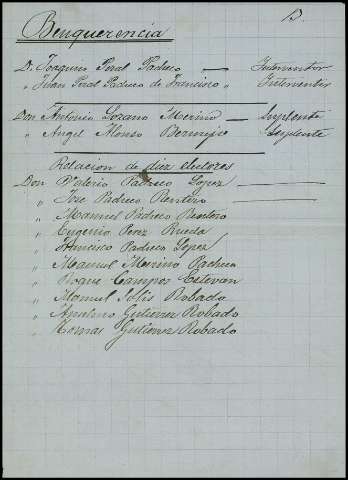 B
Benquerencia
D. Joaquin Peral Pacheco — Interventor
" Juan Peral Pacheco de Francisco " Interventor
Don Antonio Lozano Merino — Suplente
" Angel Alonso Bermejo Suplente
Relacion de diez electores
Don Valerio Pacheco Lopez
" Jose Pacheco Rentero
" Manuel Pacheco Rentero
" Eugenio Perez Rueda
" Francisco Pacheco Lopez
" Manuel Merino Pacheco
" Campos Estevan
" Manuel Solis Robado
" Anselmo Gutierrez Robado
" Tomas Gutierrez Robado